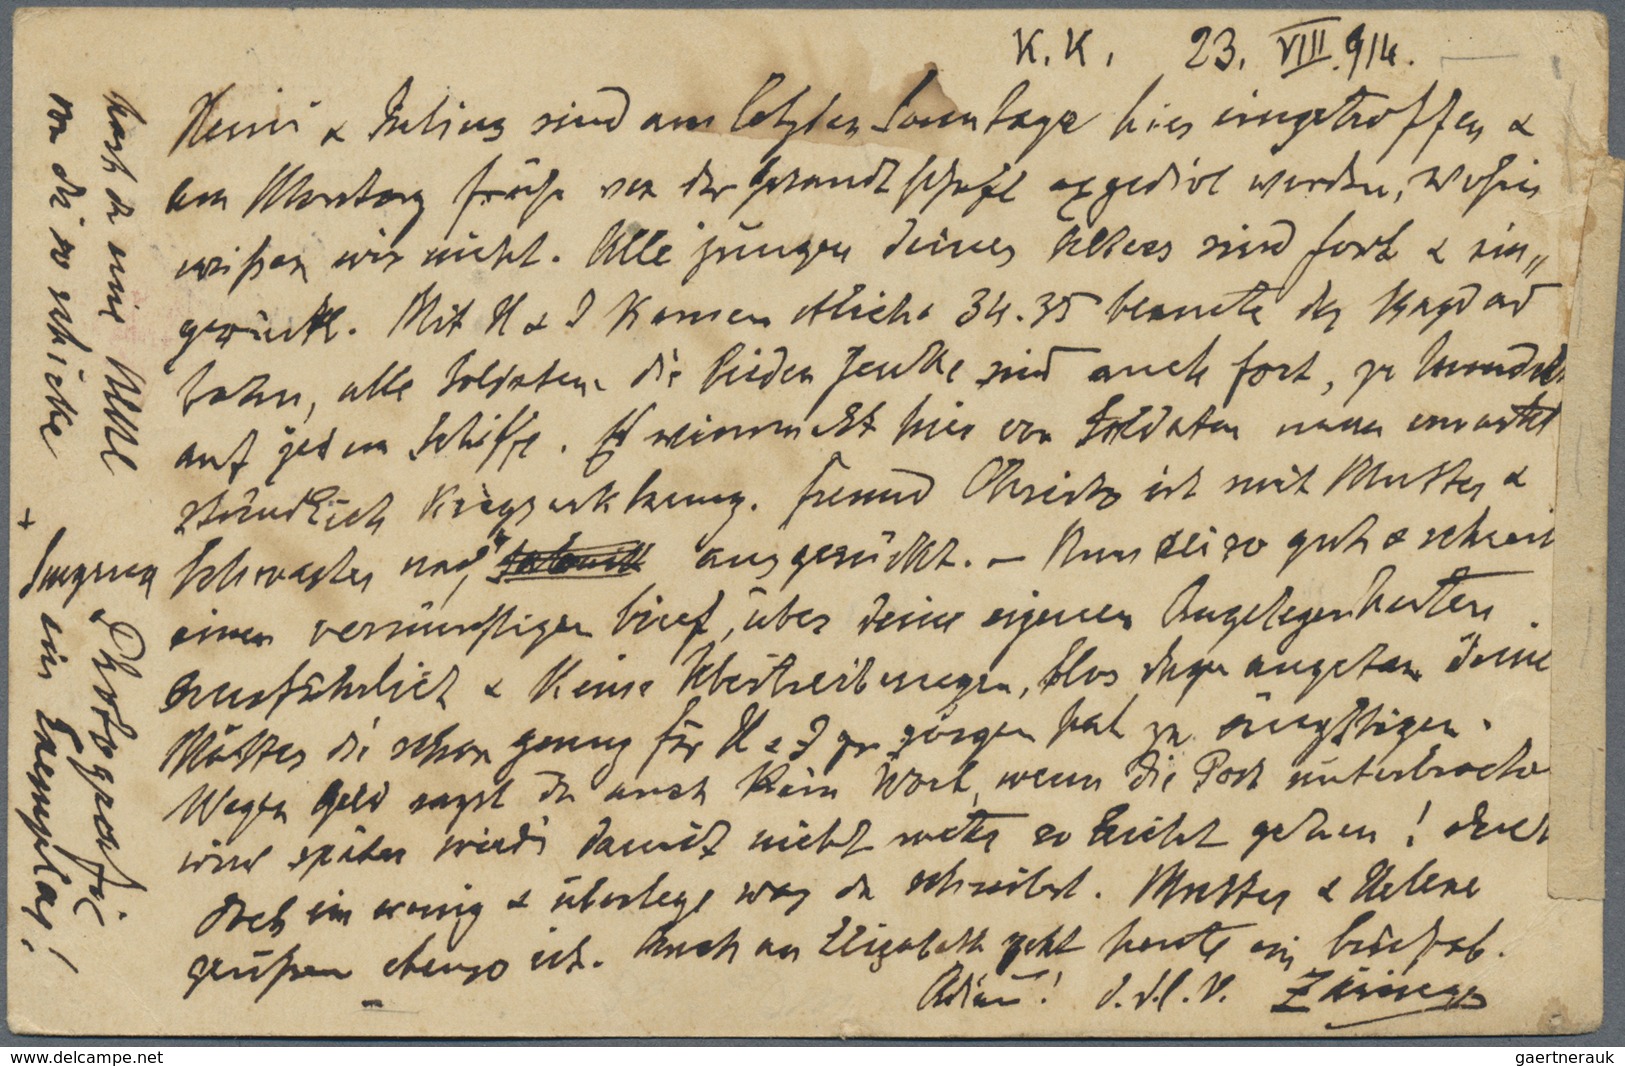 K.K. 23. VIII. 914.
Heini & Julius sind am letzten Sonntage hier eingetroffen &
am Montag früh von der Gesandtschaft expediert worden, wohin
wißen wir nicht. Alle jungen deines Alters sind fort & ein„
gerückt. Mit H & J kamen etliche 34.35 beamte der Bagdad
bahn, alle Soldaten. die beiden Jencke sind auch fort, zu
auf jedem Schiffe. Es wimmelt hier von Soldaten man erwartet
stündlich Kriegserklärung. Freund Christo ist mit Mutter &
Schwester nach ausgerückt. – Nun sei so gut & schreib
einen vernünftigen brief, über deine eigenen Angelegenheiten
ausführlich & keine Übertreibungen, blos dazu angetan deine
Mutter die schon genug für H & J zu sorgen hat zu ängstigen.
Wegen Geld sagst du auch kein Wort, wenn die Post unterbrochen
wird später wird's damit nicht mehr so leicht gehen! denk
doch ein wenig & überlege was du schreibst. Mutter & Helene
grüßen ebenso ich. Auch an Elizabeth geht heute ein brief ab.
Adieu! d.d.l.V.
hast du eine
von die so schicke
+
Smyrna
Photografie
ein Exemplar!
www.delcampe.net
gaertnerauk